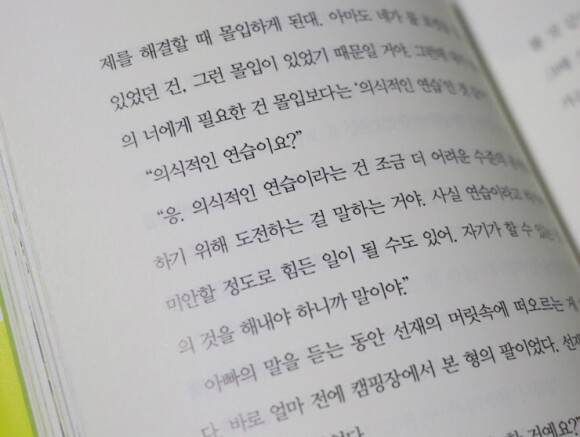 제를 해결할 때 몰입하게 된대. 아마도 네가
있었던 건, 그런 몰입이 있었기 때문일 거야. 그런데
의 너에게 필요한 건 몰입보다는 ‘의식적인 연습’인
“의식적인 연습이요?”
“응. 의식적인 연습이라는 건 조금 더 어려운 수준의
하기 위해 도전하는 걸 말하는 거야. 사실 연습이라고
미안할 정도로 힘든 일이 될 수도 있어. 자기가 할 수 있는
의 것을 해내야 하니까 말이야.”
아빠의 말을 듣는 동안 선재의 머릿속에 떠오르는 게
다. 바로 얼마 전에 캠핑장에서 본 형의 팔이었다. 선재
거예요?”